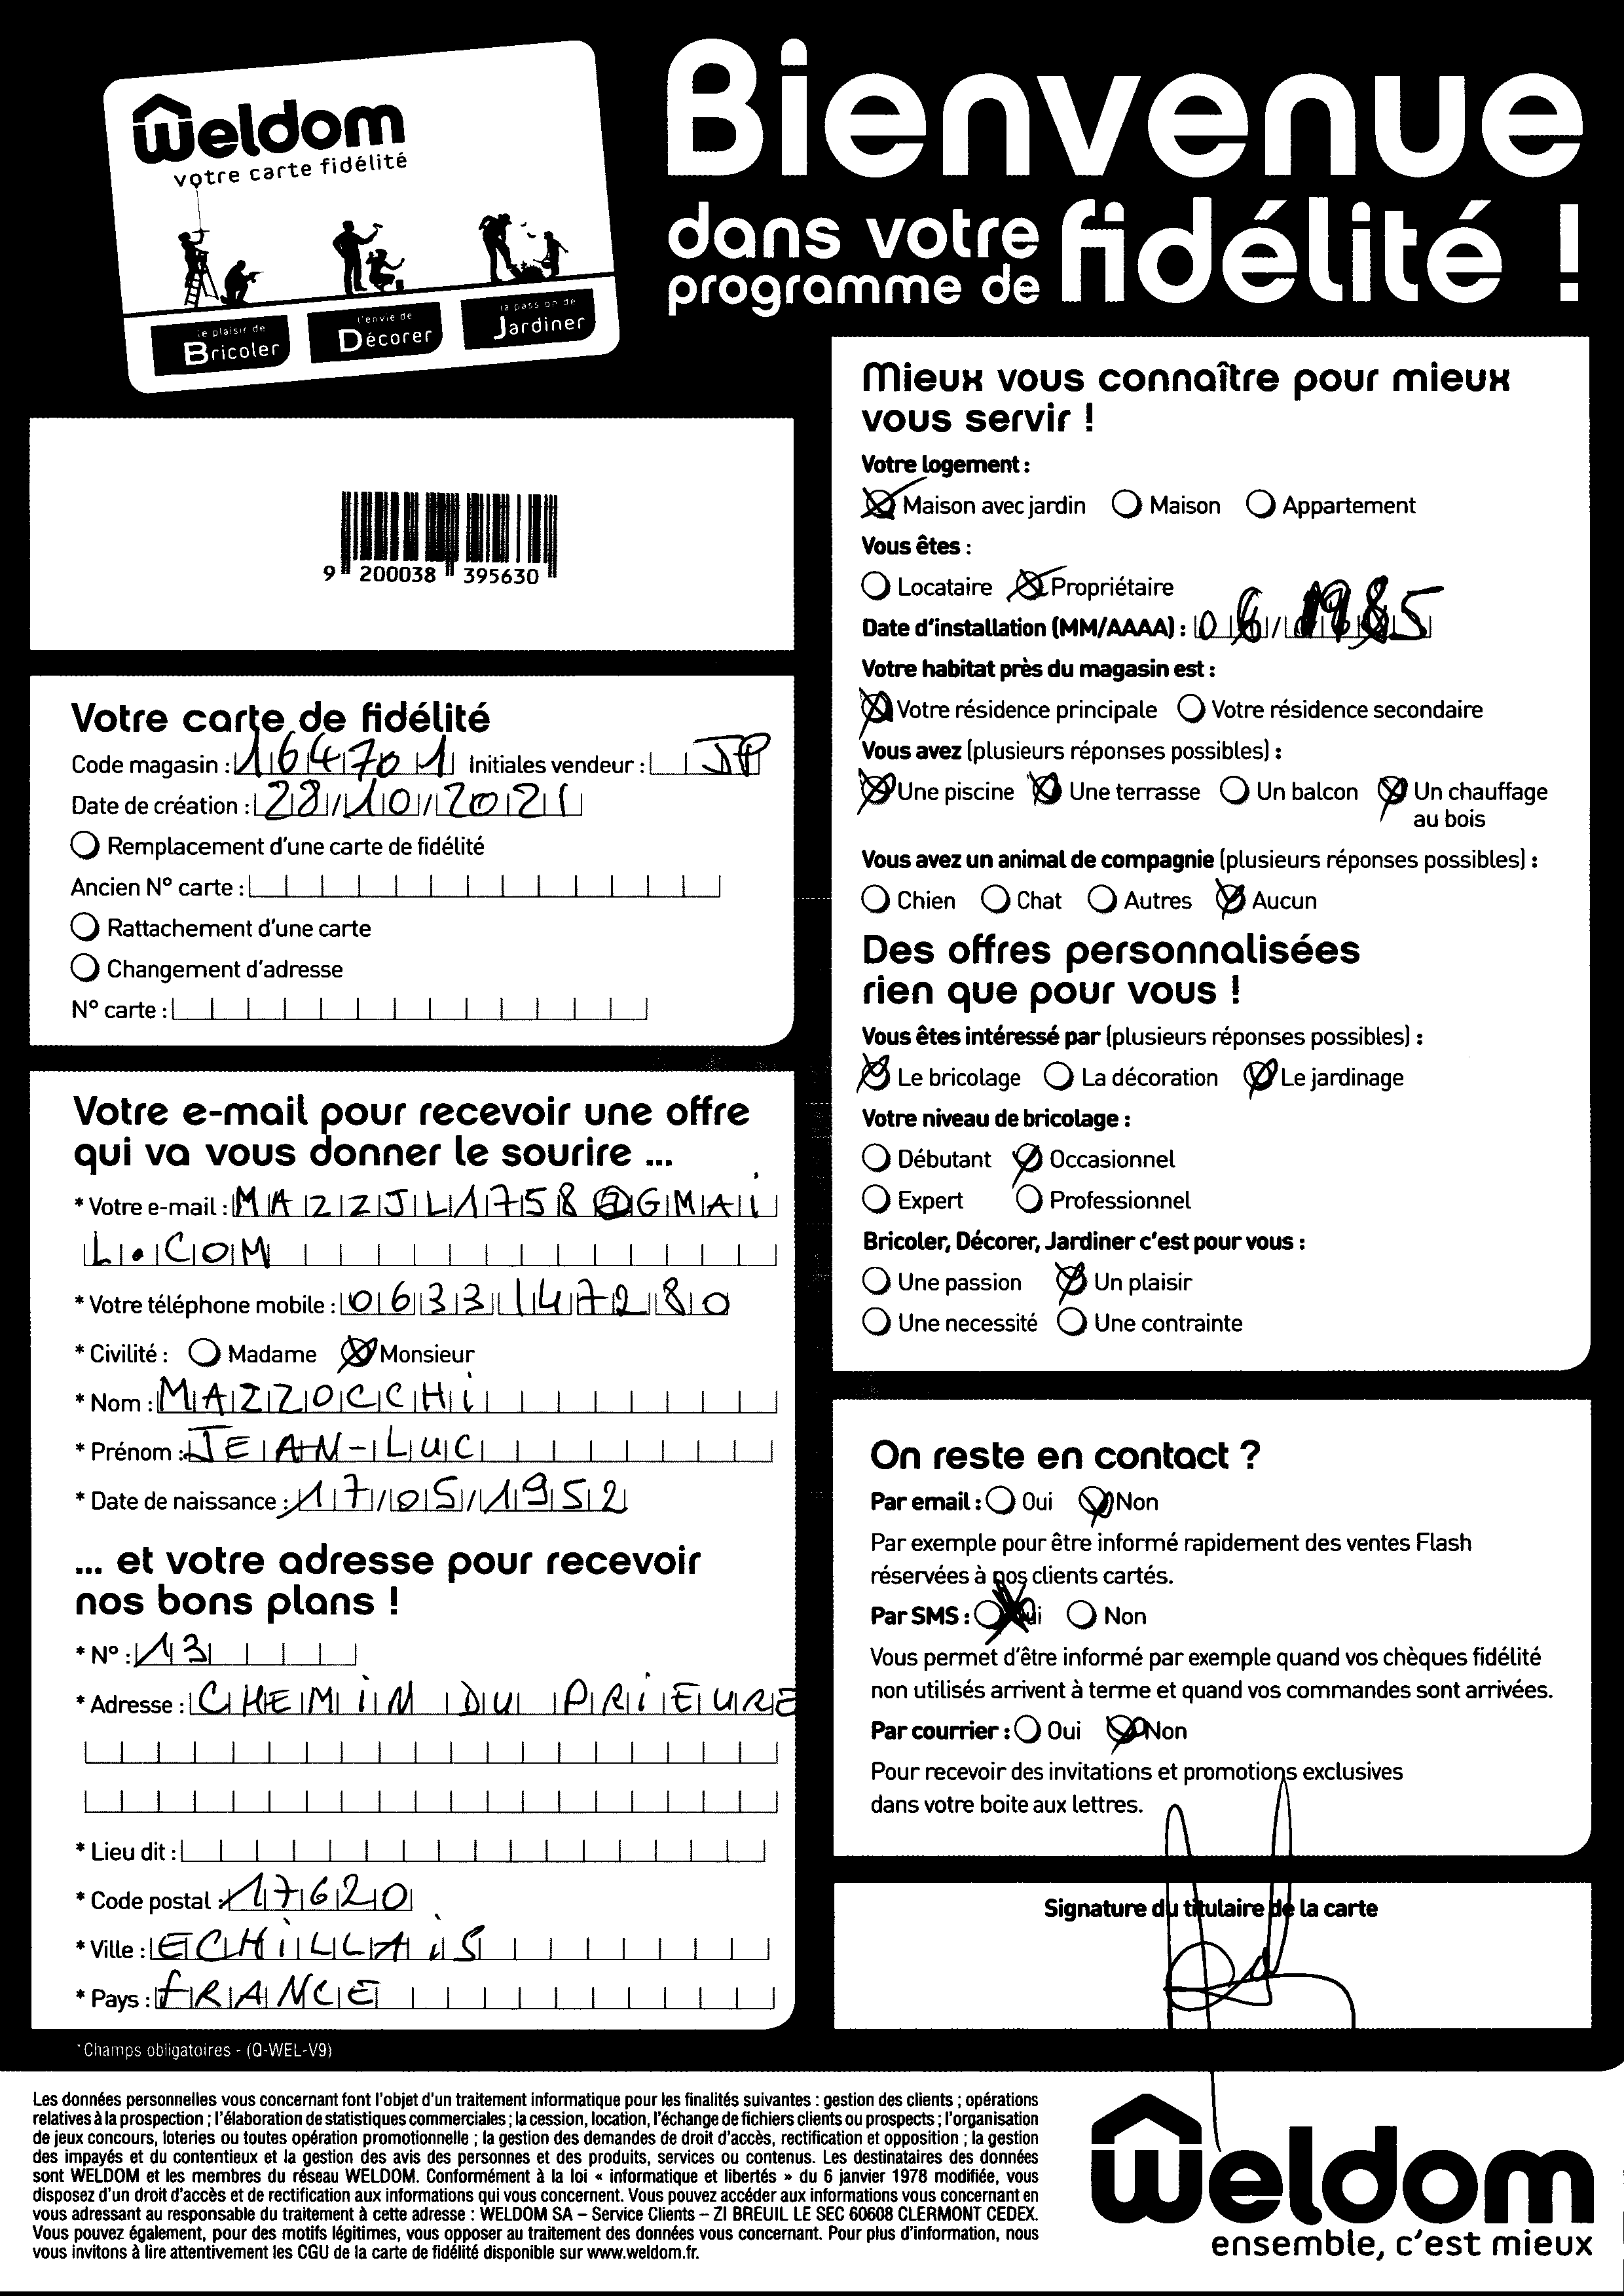 Weldom
votre carte fidélité
le plaisir de
Bricoler
l'envie de
Décorer
la passion de
Jardiner
Bienvenue
dans votre
programme de fidélité !
9 200038 395630
Votre carte de fidélité
Code magasin : 164701 Initiales vendeur : JP
Date de création : 28/10/2021
Remplacement d'une carte de fidélité
Ancien N° carte :
Rattachement d'une carte
Changement d'adresse
N° carte :
Votre e-mail pour recevoir une offre
qui va vous donner le sourire ...
* Votre e-mail : MAZZJL1758@GMAi
L.COM
* Votre téléphone mobile : 0633147280
* Civilité : Madame Monsieur
* Nom : MAZZOCCHi
* Prénom : JEAN-LUC
* Date de naissance : 17/05/1952
... et votre adresse pour recevoir
nos bons plans !
* N° : 13
* Adresse : CHEMiN DU PRiEURE
* Lieu dit :
* Code postal : 17620
* Ville : ECHiLLAiS
* Pays : fRANCE
*Champs obligatoires - (Q-WEL-V9)
Mieux vous connaître pour mieux
vous servir !
Votre logement :
Maison avec jardin Maison Appartement
Vous êtes :
Locataire Propriétaire
Date d'installation (MM/AAAA) : 06/1985
Votre habitat près du magasin est :
Votre résidence principale Votre résidence secondaire
Vous avez (plusieurs réponses possibles) :
Une piscine Une terrasse Un balcon Un chauffage
au bois
Vous avez un animal de compagnie (plusieurs réponses possibles) :
Chien Chat Autres Aucun
Des offres personnalisées
rien que pour vous !
Vous êtes intéressé par (plusieurs réponses possibles) :
Le bricolage La décoration Le jardinage
Votre niveau de bricolage :
Débutant Occasionnel
Expert Professionnel
Bricoler, Décorer, Jardiner c'est pour vous :
Une passion Un plaisir
Une necessité Une contrainte
On reste en contact ?
Par email : Oui Non
Par exemple pour être informé rapidement des ventes Flash
réservées à nos clients cartés.
Par SMS : Oui Non
Vous permet d'être informé par exemple quand vos chèques fidélité
non utilisés arrivent à terme et quand vos commandes sont arrivées.
Par courrier : Oui Non
Pour recevoir des invitations et promotions exclusives
dans votre boite aux lettres.
Signature du titulaire de la carte
Les données personnelles vous concernant font l'objet d'un traitement informatique pour les finalités suivantes : gestion des clients ; opérations
relatives à la prospection ; l'élaboration de statistiques commerciales ; la cession, location, l'échange de fichiers clients ou prospects ; l'organisation
de jeux concours, loteries ou toutes opération promotionnelle ; la gestion des demandes de droit d'accès, rectification et opposition ; la gestion
des impayés et du contentieux et la gestion des avis des personnes et des produits, services ou contenus. Les destinataires des données
sont WELDOM et les membres du réseau WELDOM. Conformément à la loi « informatique et libertés » du 6 janvier 1978 modifiée, vous
disposez d'un droit d'accès et de rectification aux informations qui vous concernent. Vous pouvez accéder aux informations vous concernant en
vous adressant au responsable du traitement à cette adresse : WELDOM SA – Service Clients – ZI BREUIL LE SEC 60608 CLERMONT CEDEX.
Vous pouvez également, pour des motifs légitimes, vous opposer au traitement des données vous concernant. Pour plus d'information, nous
vous invitons à lire attentivement les CGU de la carte de fidélité disponible sur www.weldom.fr.
Weldom
ensemble, c'est mieux